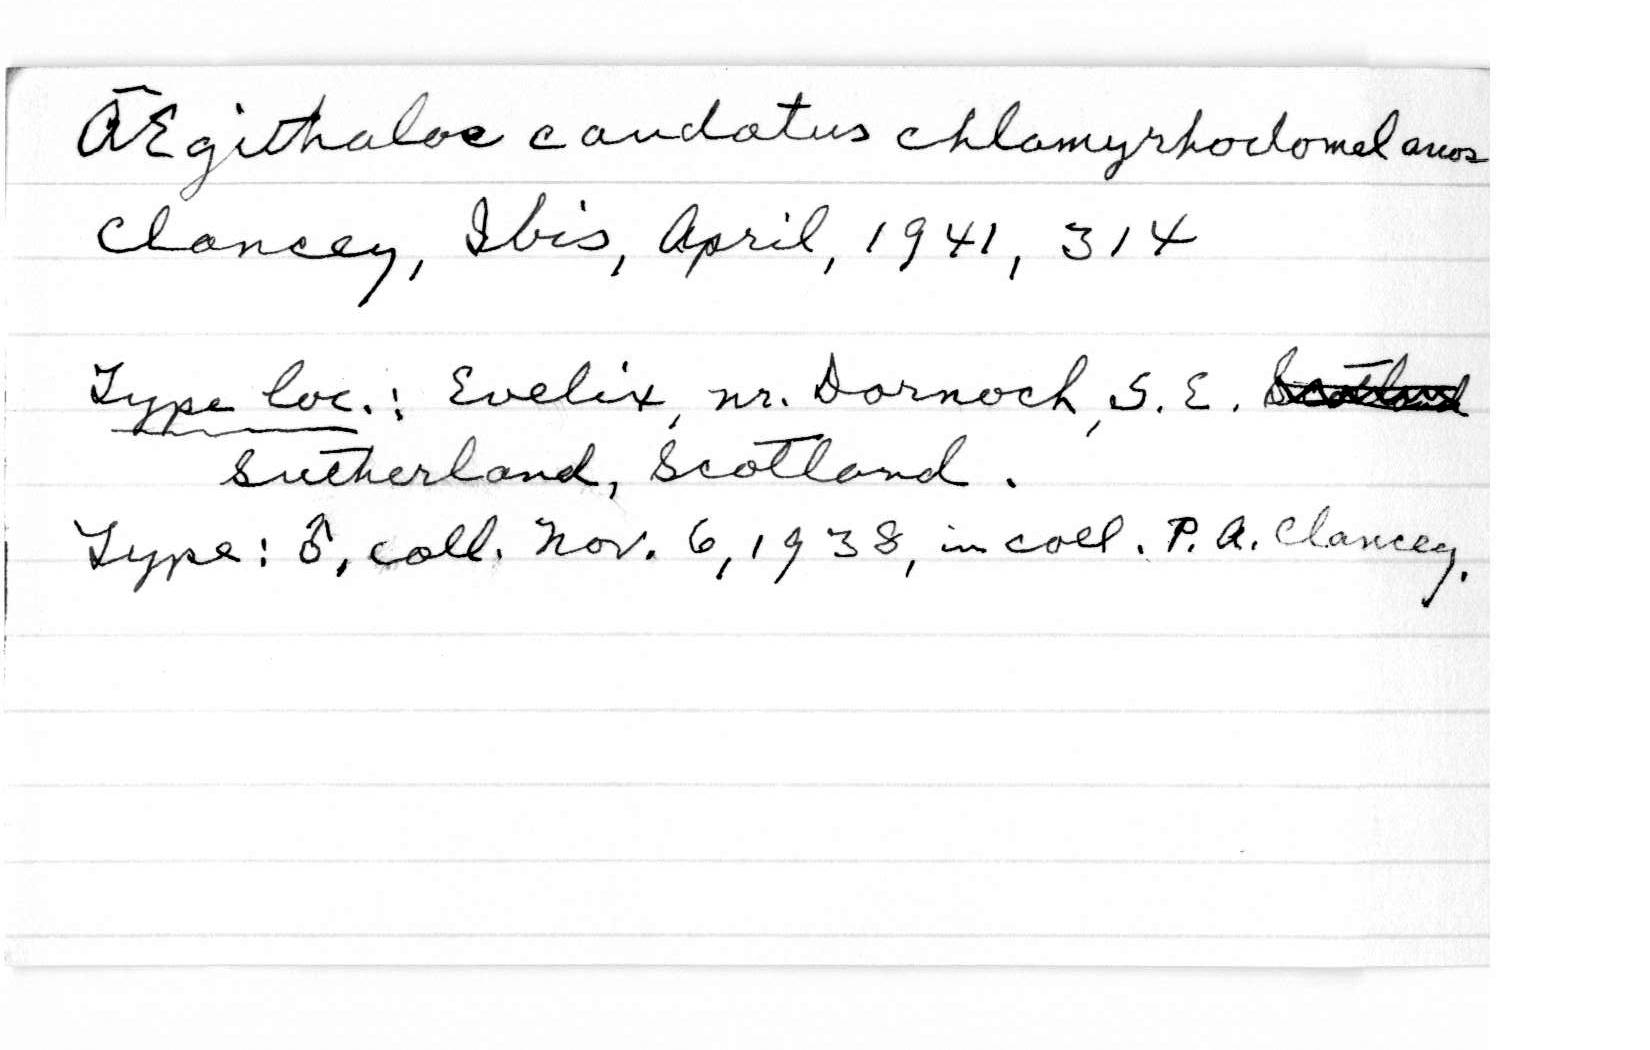 Aegithalos caudatus chlamyrhodomelanos
Clancey, Ibis, April, 1941, 314
Type loc.: Evelix, nr. Dornoch, S. E. Scotland
Sutherland, Scotland.
Type: ♂, coll. Nov. 6, 1938, in coll. P. A. Clancey.